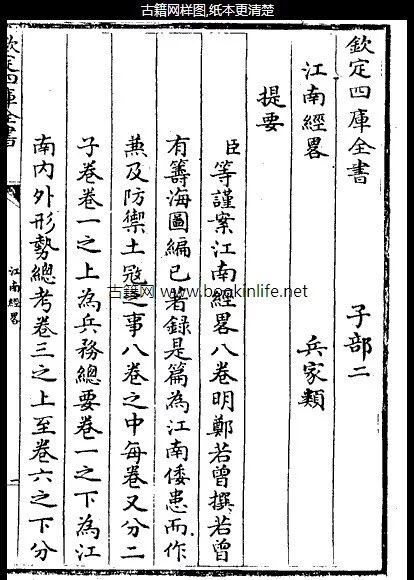 古籍网样图,纸本更清楚
欽定四庫全書 子部二
江南經畧 兵家類
提要
臣等謹案江南經畧八卷明鄭若曾撰若曾
有籌海圖編已著錄是篇為江南倭患而作
兼及防禦土寇之事八卷之中每卷又分二
子卷卷一之上為兵務總要卷一之下為江
南內外形勢總考卷三之上至卷六之下分
欽定四庫全書
江南經畧
一
古籍网 www.bookinlife.net